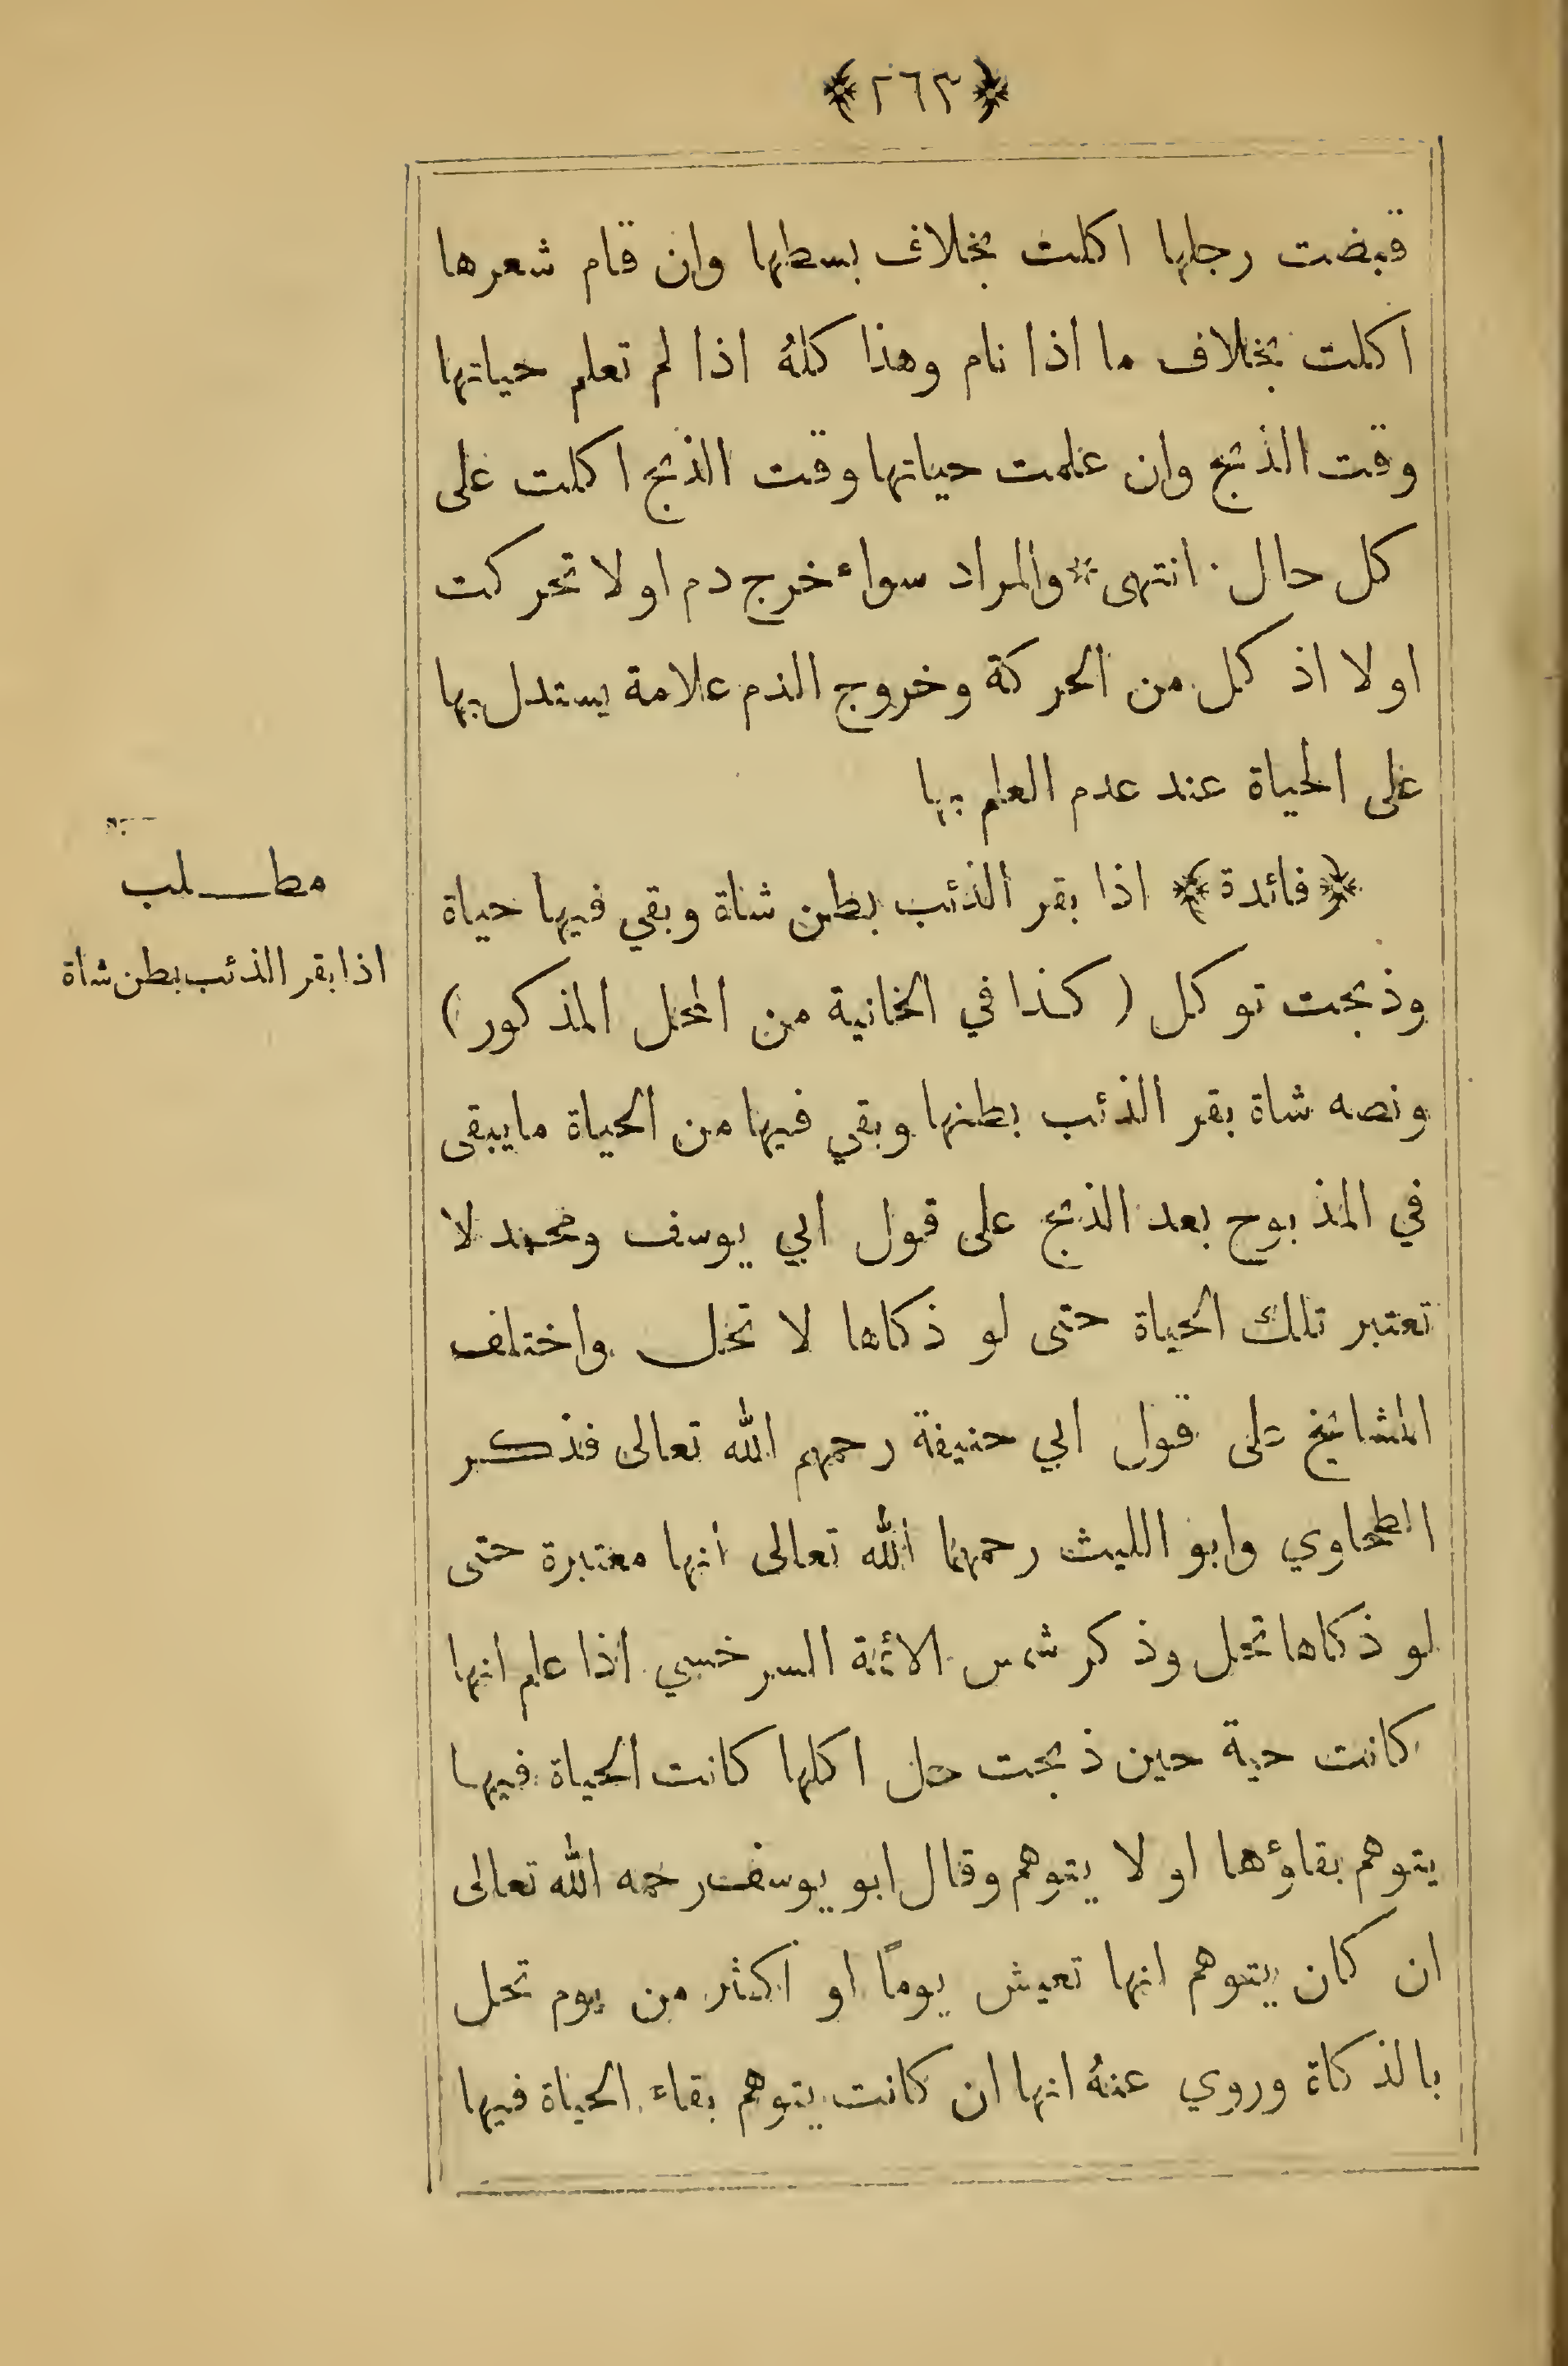 ﴿٢٦٣﴾
قبضت رجلها اكلت بخلاف بسطها وان قام شعرها
اكلت بخلاف ما اذا نام وهذا كلهُ اذا لم تعلم حياتها
وقت الذبح وان علمت حياتها وقت الذبح اكلت على
كل حال . انتهى * والمراد سواء خرج دم او لا تحركت
او لا اذ كل من الحركة وخروج الدم علامة يستدل بها
على الحياة عند عدم العلم بها
﴿فائدة﴾ اذا بقر الذئب بطن شاة وبقي فيها حياة
وذبحت توكل ( كذا في الخانية من المحل المذكور )
ونصه شاة بقر الذئب بطنها وبقي فيها من الحياة مايبقى
في المذبوح بعد الذبح على قول ابي يوسف ومحمد لا
تعتبر تلك الحياة حتى لو ذكاها لا تحل واختلف
المشايخ على قول ابي حنيفة رحمهم الله تعالى فذكر
الطحاوي وابو الليث رحمهما الله تعالى انها معتبرة حتى
لو ذكاها تحل وذكر شمس الائمة السرخسي اذا علم انها
كانت حية حين ذبحت حل اكلها كانت الحياة فيها
يتوهم بقاؤها او لا يتوهم وقال ابو يوسف رحمه الله تعالى
ان كان يتوهم انها تعيش يومًا او اكثر من يوم تحل
بالذكاة وروي عنهُ انها ان كانت يتوهم بقاء الحياة فيها
مطلب
اذا بقر الذئب بطن شاة